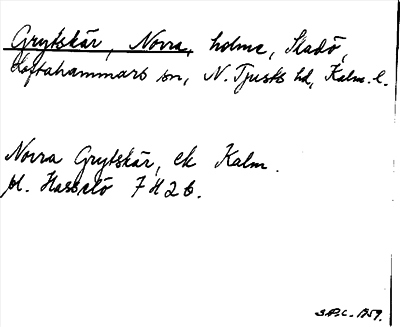 Grytskär, Norra, holme, Sladö,
Loftahammars sn, N. Tjusts hd, Kalm. l.
Norra Grytskär, ek Kalm.
bl. Hasselö 7 H 2 b.
S.P.L. 1959.